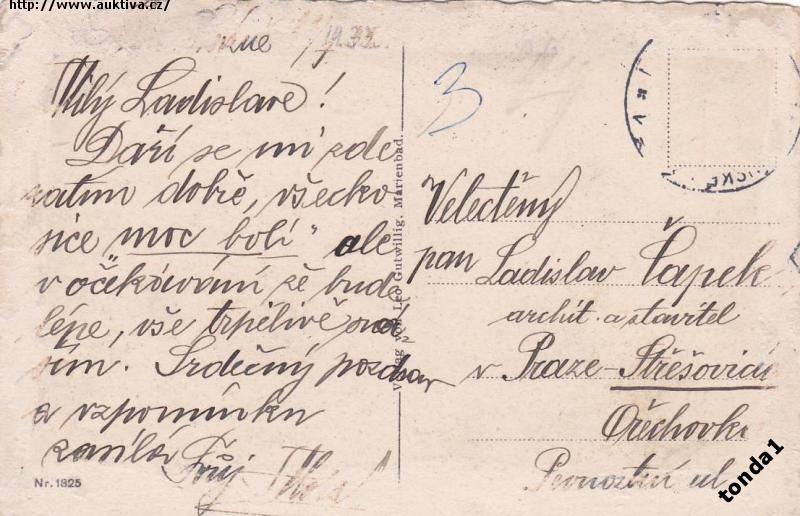 http://www.auktiva.cz/
1933
Milý Ladislave!
Daří se mi zde
zatím dobře, všecko
sice „moc bolí" ale
v očekávání že bude
lépe, vše trpělivě sná
ším. Srdečný pozdrav
a vzpomínku
zasílá Tvůj
3
Velectěný
pan Ladislav Čapek
archit. a stavitel
v Praze-Střešovicích
Ořechovka
Pevnostní ul
Verlag von Leo Gutwillig, Marienbad.
Nr. 1825
tonda1